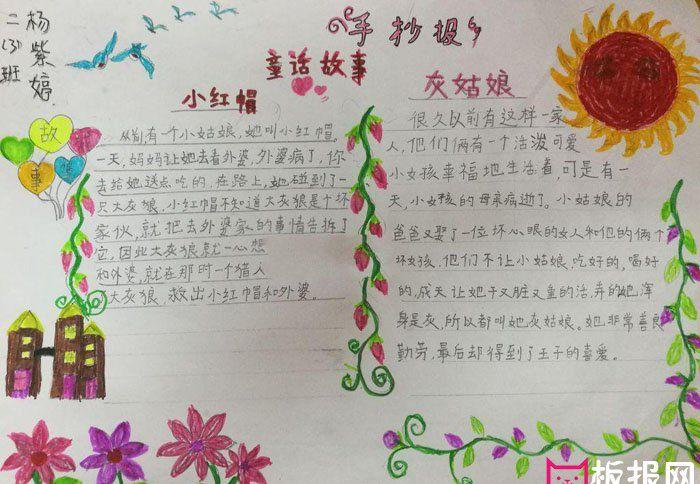 杨紫婷
二(3)班
手抄报
童话故事
故
事
小红帽
从前,有一个小姑娘,她叫小红帽。
一天,妈妈让她去看外婆,外婆病了,你
去给她送点吃的,在路上,她碰到了一
只大灰狼,小红帽不知道大灰狼是个坏
家伙,就把去外婆家的事情告拆了
它,因此大灰狼就一心想
和外婆,就在那时一个猎人
大灰狼,救出小红帽和外婆。
灰姑娘
很久以前有这样一家
人,他们俩有一个活泼可爱
小女孩幸福地生活着,可是有一
天,小女孩的母亲病逝了。小姑娘的
爸爸又娶了一位坏心眼的女人和他的俩个
坏女孩,他们不让小姑娘,吃好的,喝好
的,成天让她干又脏又重的活,弄的她浑
身是灰,所以都叫她灰姑娘。她非常善良
勤劳,最后却得到了王子的喜爱。
板报网